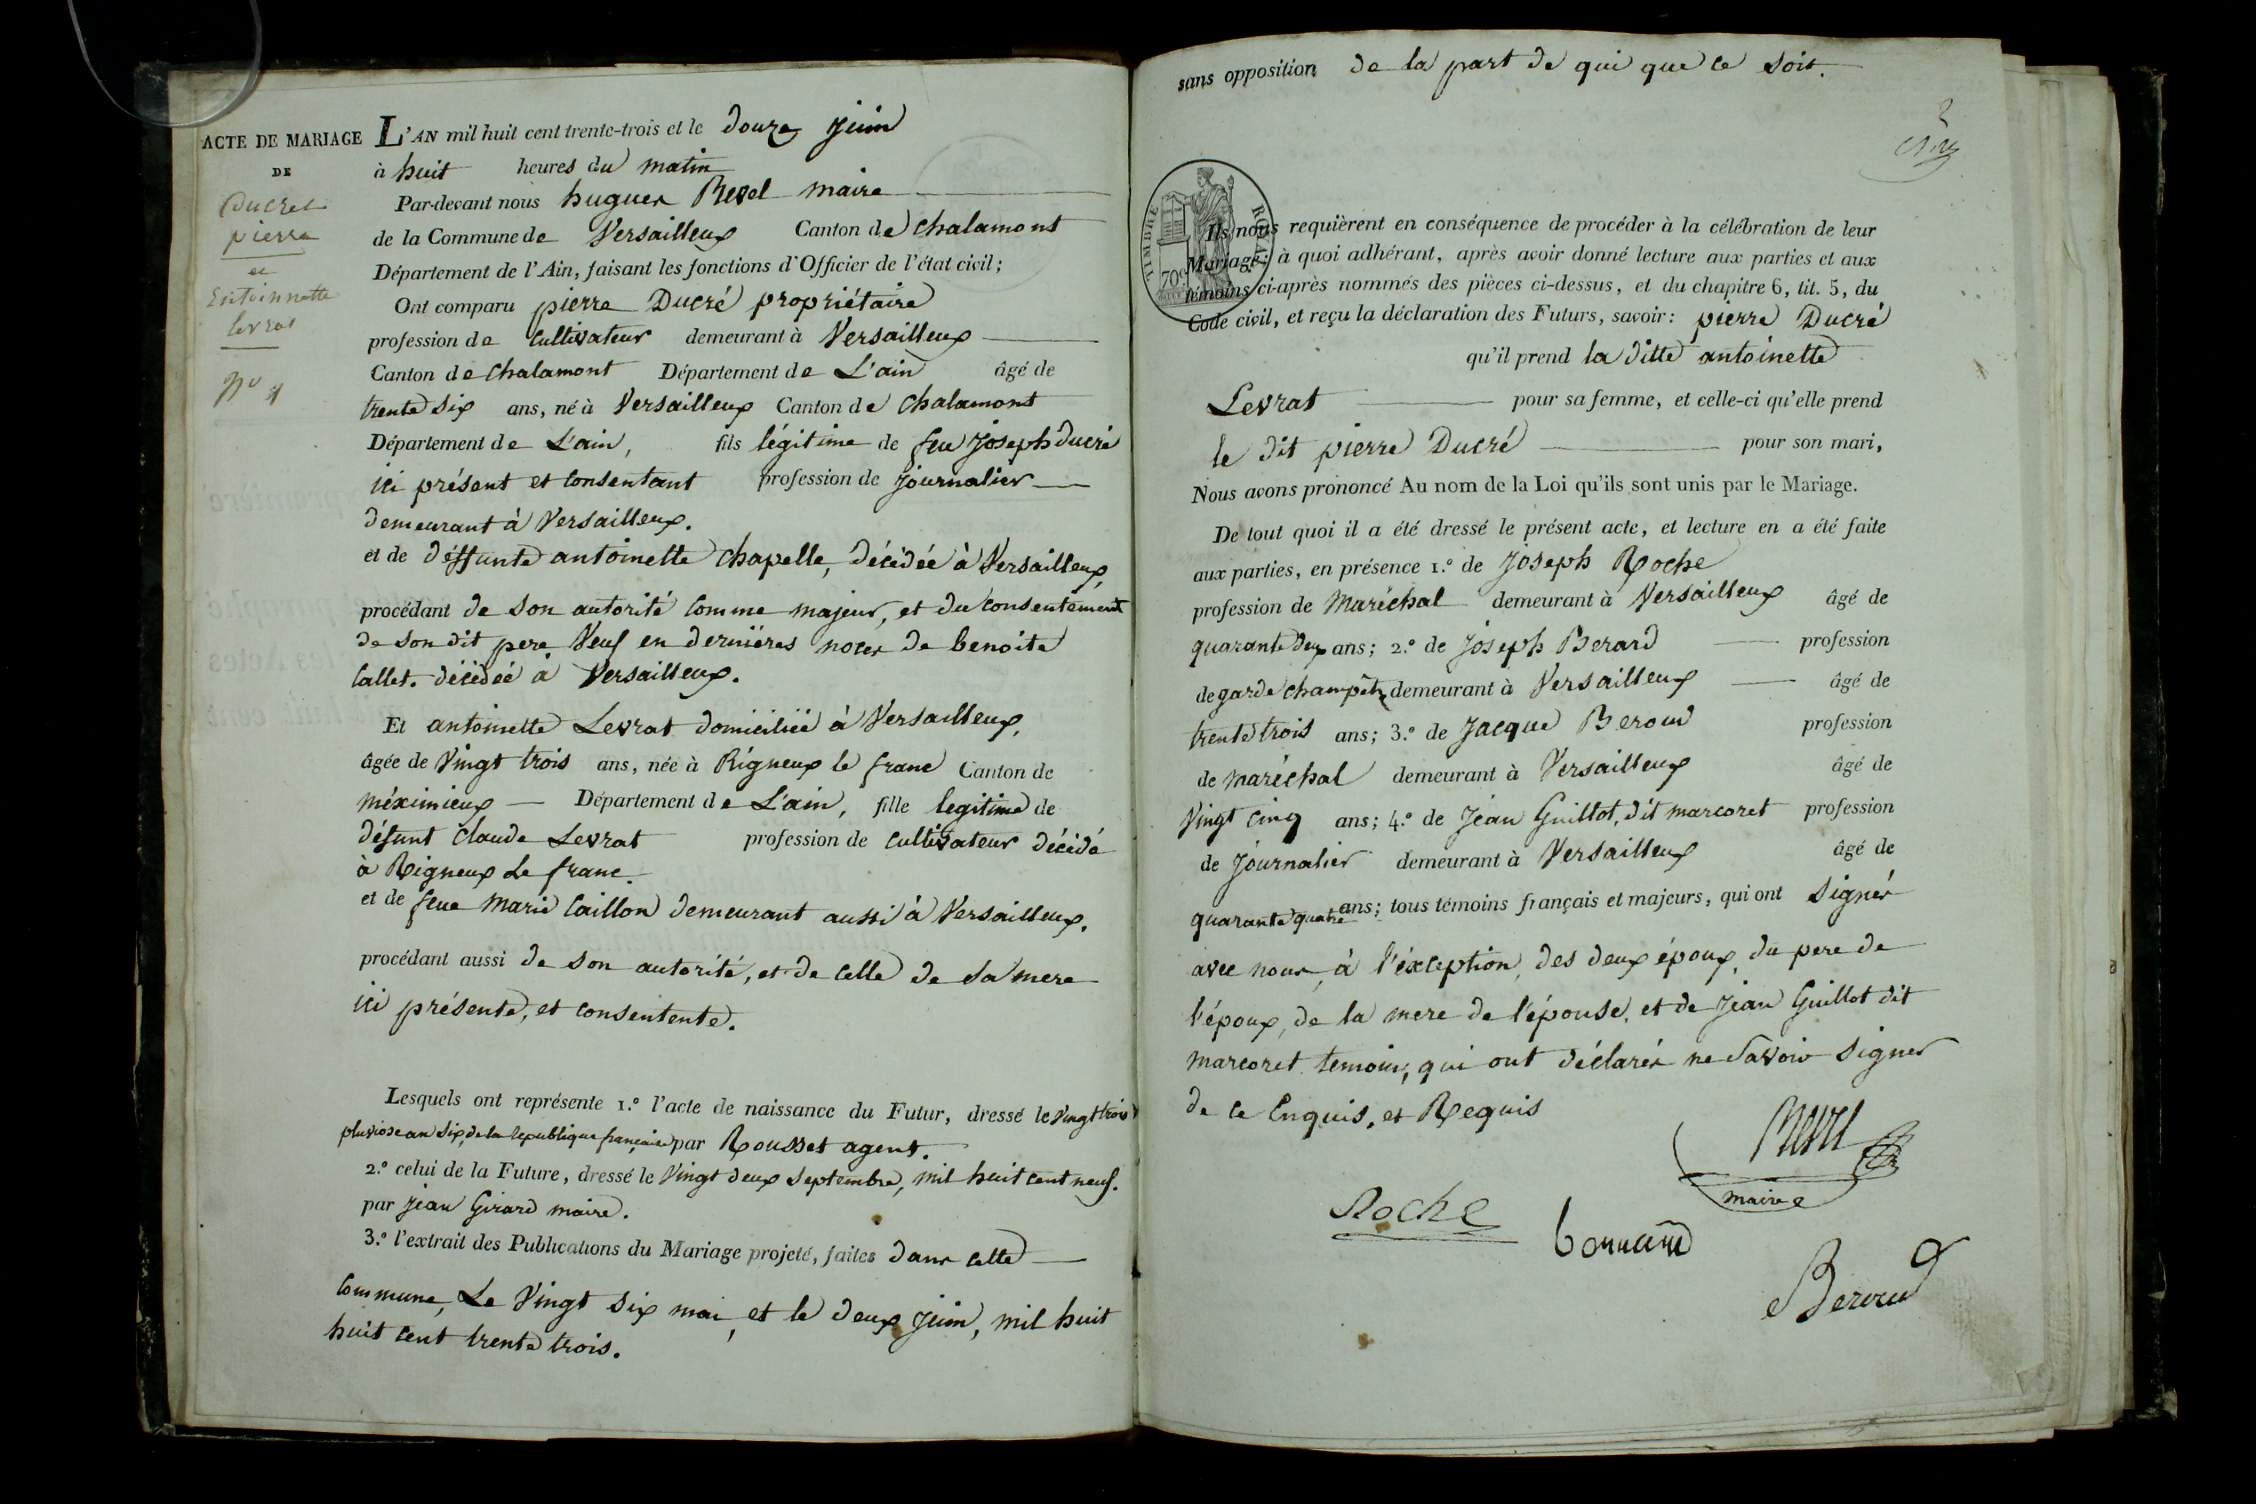 ACTE DE MARIAGE
DE
Ducret
pierre
et
Entoinnette
levrat
L'AN mil huit cent trente-trois et le douze Juin
à huit heures du matin
Par-devant nous hugues Revel maire
de la Commune de Versailleux Canton de chalamont
Département de l'Ain, faisant les fonctions d'Officier de l'état civil;
Ont comparu pierre Ducré propriétaire
profession de Cultivateur demeurant à Versailleux
Canton de chalamont Département de L'ain âgé de
trente six ans, né à Versailleux Canton de chalamont
Département de L'ain, fils légitime de feu Joseph ducré
ici présent et consentant profession de journalier
demeurant à Versailleux.
et de déffunte antoinette chapelle, décédée à Versailleux,
procédant de son autorité comme majeur, et du consentement
de son dit pere Veuf en dernières noces de benoite
Callet. décédeé à Versailleux.
Et antoinette Levrat domiciliée à Versailleux,
âgée de Vingt trois ans, née à Rigneux le franc Canton de
méximieux Département de L'ain, fille legitime de
défunt Claude Levrat profession de cultivateur décédé
à Rigneux Le franc.
et de feue Marie Caillon demeurant aussi à Versailleux.
procédant aussi de son autorité, et de celle de sa mere
ici présente, et consentente.
Lesquels ont représente 1.º l'acte de naissance du Futur, dressé le Vingt trois
pluviose an Six, de la republique française par Rousset agent.
2.º celui de la Future, dressé le Vingt deux Septembre, mil huit cent neuf.
par Jean Girard maire.
3.º l'extrait des Publications du Mariage projeté, faites dans cette
Commune, Le Vingt six mai, et le deux Juin, mil huit
huit cent trente trois.
sans opposition de la part de qui que ce soit.
TIMBRE ROYAL
70c
Ils nous requièrent en conséquence de procéder à la célébration de leur
Mariage; à quoi adhérant, après avoir donné lecture aux parties et aux
témoins ci-après nommés des pièces ci-dessus, et du chapitre 6, tit. 5, du
Code civil, et reçu la déclaration des Futurs, savoir: pierre Ducré
qu'il prend la ditte antoinette
Levrat pour sa femme, et celle-ci qu'elle prend
le dit pierre Ducré pour son mari,
Nous avons prononcé Au nom de la Loi qu'ils sont unis par le Mariage.
De tout quoi il a été dressé le présent acte, et lecture en a été faite
aux parties, en présence 1.º de Joseph Roche
profession de Maréchal demeurant à Versailleux âgé de
quarante deux ans; 2.º de Joseph Berard profession
de garde champêtre demeurant à Versailleux âgé de
trente trois ans; 3.º de Jacque Beroud profession
de maréchal demeurant à Versailleux âgé de
Vingt cinq ans; 4.º de Jean Guillot, dit marcoret profession
de Journalier demeurant à Versailleux âgé de
quarante quatre ans; tous témoins français et majeurs, qui ont signés
avec nous, à l'éxception, des deux époux, du pere de
l'époux, de la mere de l'épouse, et de Jean Guillot dit
marcoret temoin, qui ont déclarés ne Savoir signer
de ce Enquis, et Requis
Revel
maire
Roche
Beroud